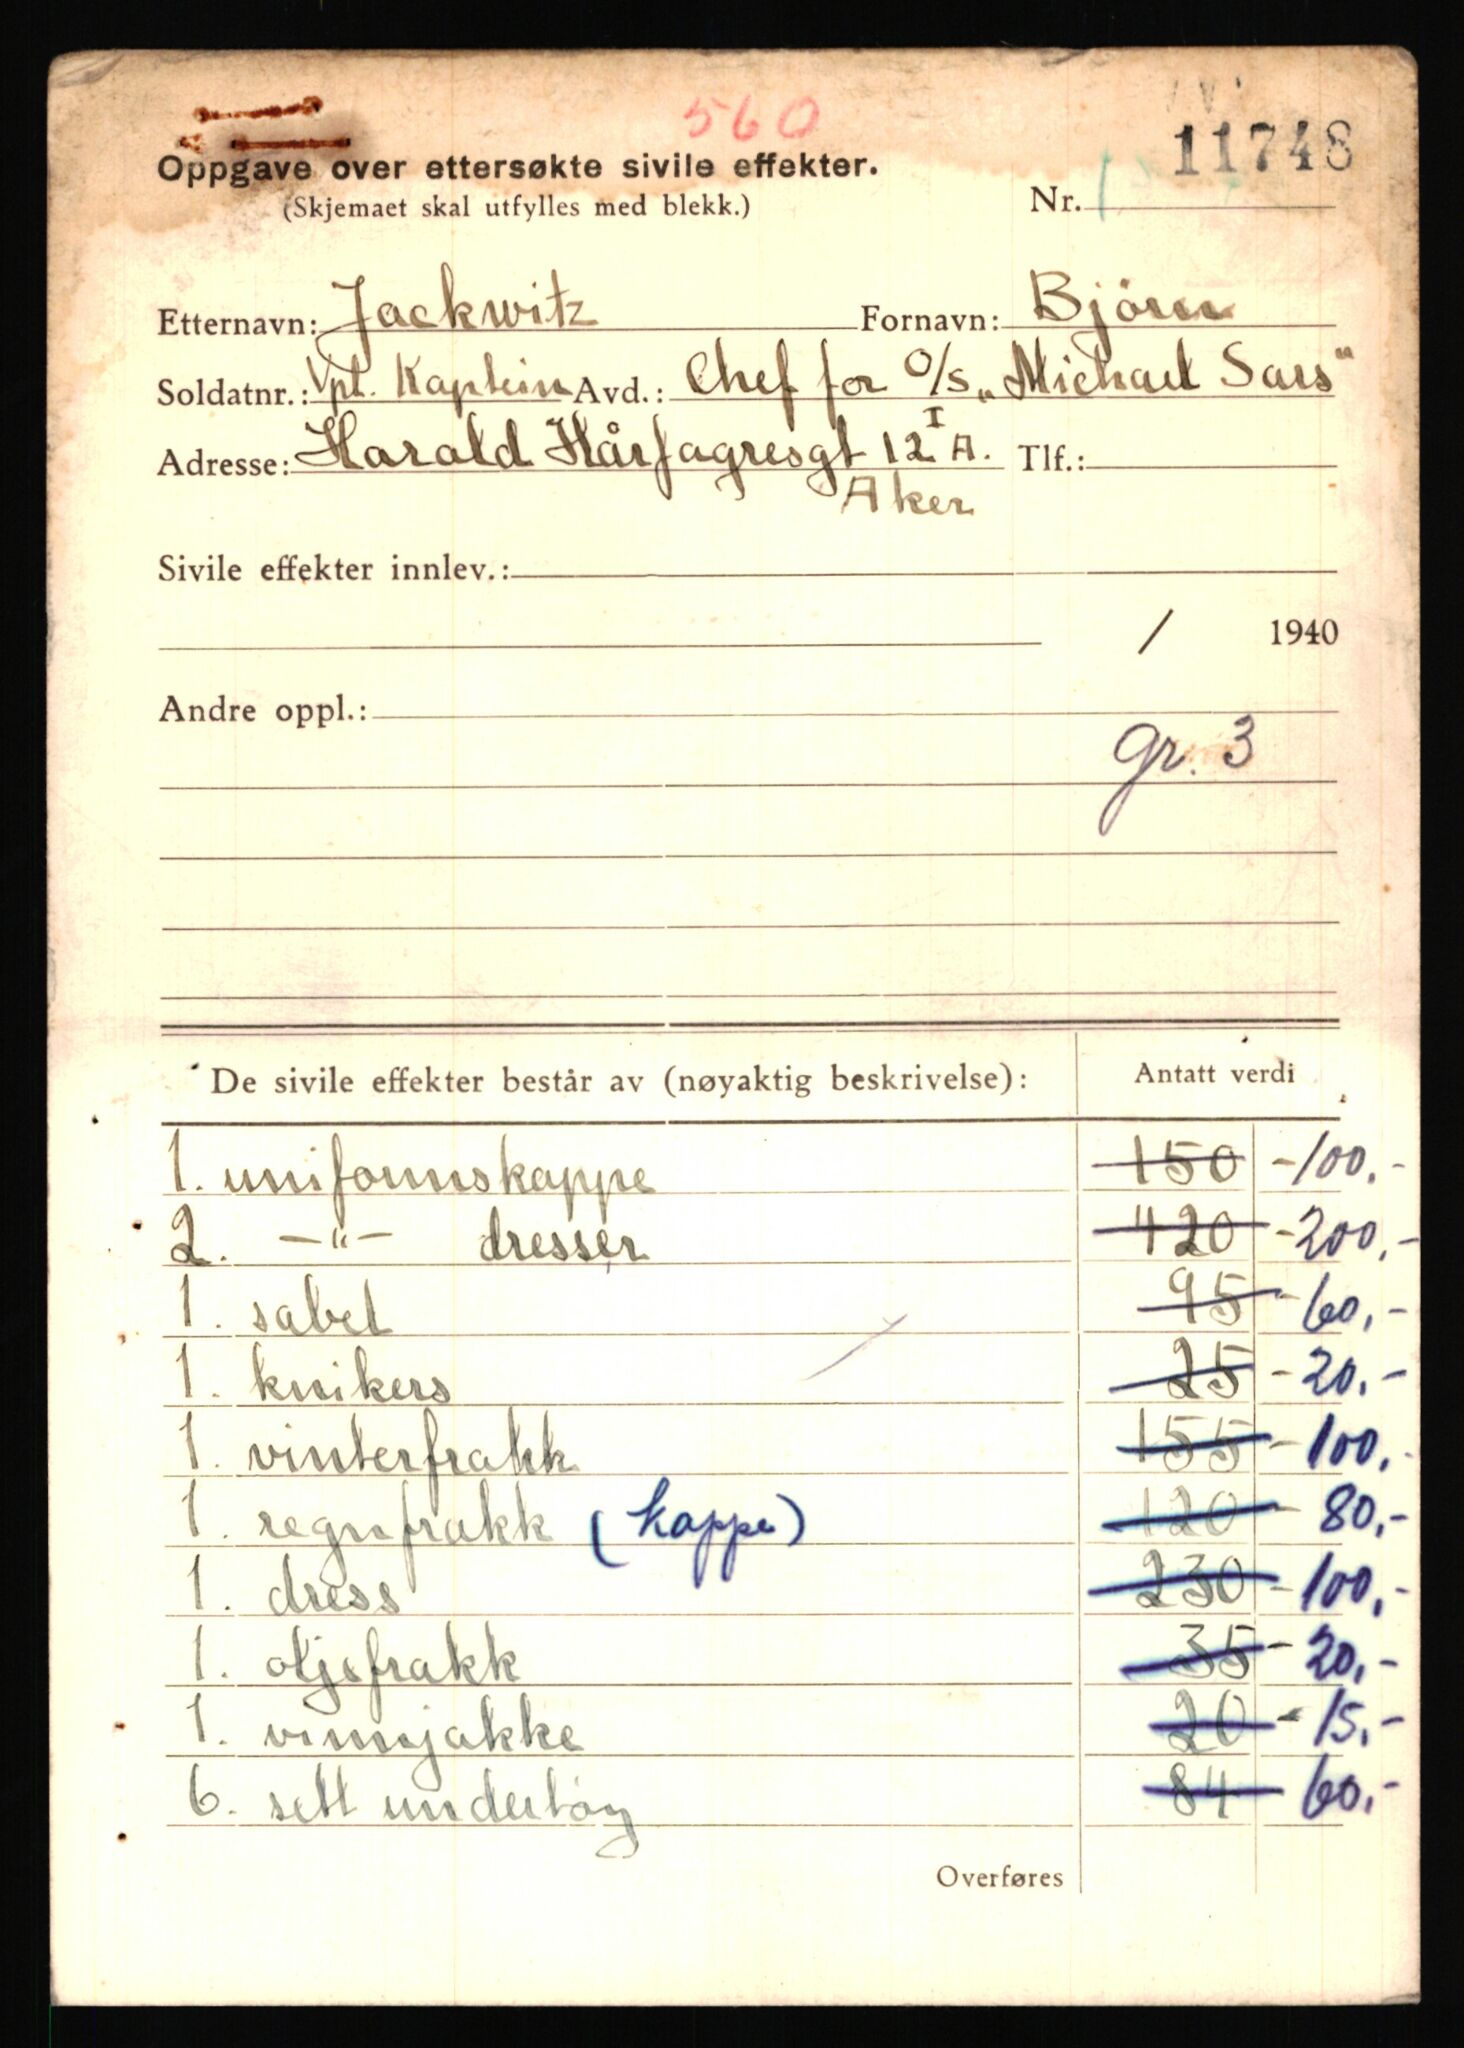 560
11748
Oppgave over ettersøkte sivile effekter.
(Skjemaet skal utfylles med blekk.)
Nr.
Etternavn: Jackwitz Fornavn: Björn
Soldatnr.: Vpl. Kaptein Avd.: Chef for O/S „Michael Sars“
Adresse: Harald Hårfagresgt 12 I A. Tlf.:
Aker
Sivile effekter innlev.:
/ 1940
Andre oppl.:
gr. 3
De sivile effekter består av (nøyaktig beskrivelse): Antatt verdi
1. uniformskappe 150 -100,-
2. -"- dresser 420 -200,-
1. sabel 95 - 60,-
1. knikers 25 - 20,-
1. vinterfrakk 155 - 100,-
1. regnfrakk (kappe) 120 - 80,-
1. dress 230 - 100,-
1. oljefrakk 35 - 20,-
1. vinnjakke 20 - 15,-
6. sett undertöy 84 60,-
Overføres